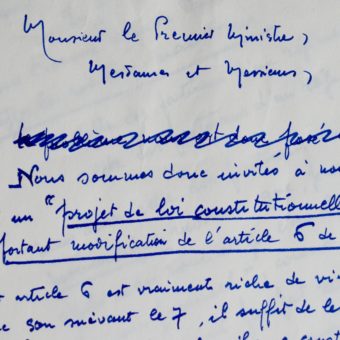 Monsieur le Premier Ministre,
Mesdames et Messieurs,
Nous sommes donc invités à
un "projet de loi constitutionnelle
portant modification de l'article 6 de
article 6 est vraiment riche de
son suivant le 7, il suffit de